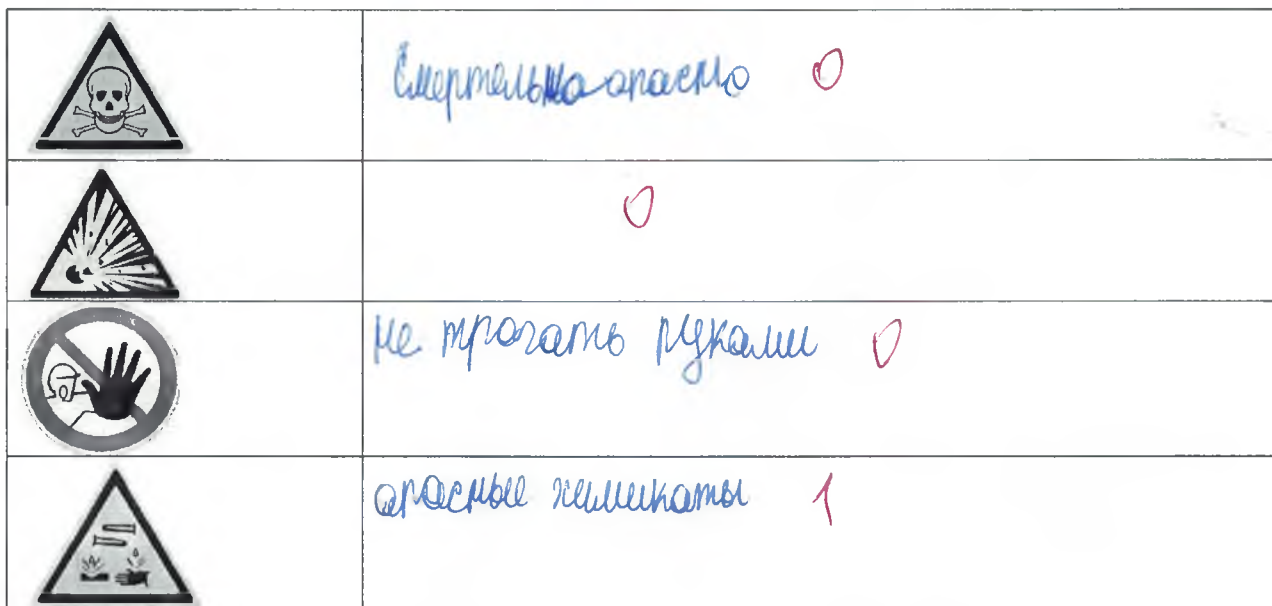 Смертельно опасно 0
0
не трогать руками 0
опасные химикаты 1